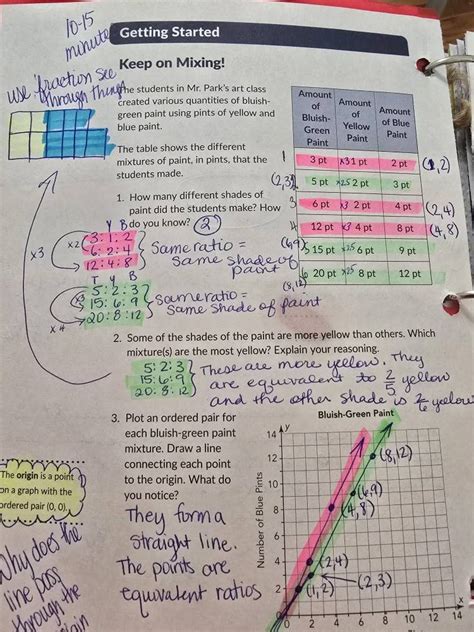 10-15
minute
Getting Started
use fraction see
through things
Keep on Mixing!
The students in Mr. Park's art class
created various quantities of bluish-
green paint using pints of yellow and
blue paint.
The table shows the different
mixtures of paint, in pints, that the
students made.
1. How many different shades of
paint did the students make? How
do you know? 2
Y B
3:1:2
6:2:4
12:4:8
x2
x3
Same ratio =
same shade of
paint
T Y B
5:2:3
15:6:9
20:8:12
x3
x4
Same ratio =
same shade of paint
Amount of Bluish-Green Paint
Amount of Yellow Paint
Amount of Blue Paint
1 3 pt x3 1 pt 2 pt (1,2)
(2,3) 5 pt x2.5 2 pt 3 pt
3 6 pt x3 2 pt 4 pt (2,4)
4 12 pt x3 4 pt 8 pt (4,8)
(6,9) 5 15 pt x2.5 6 pt 9 pt
(8,12) 6 20 pt x2.5 8 pt 12 pt
2. Some of the shades of the paint are more yellow than others. Which
mixture(s) are the most yellow? Explain your reasoning.
5:2:3
15:6:9
20:8:12
These are more yellow. They
are equivalent to 2/5 yellow
and the other shade is 2/6 yellow
3. Plot an ordered pair for
each bluish-green paint
mixture. Draw a line
connecting each point
to the origin. What do
you notice?
They form a
straight line.
The points are
equivalent ratios
The origin is a point
on a graph with the
ordered pair (0, 0).
Why does the
line pass
through the
Bluish-Green Paint
y
Number of Blue Pints
14
12
10
8
6
4
2
0 2 4 6 8 10 12 14
(8,12)
(6,9)
(4,8)
(2,4)
(2,3)
(1,2)